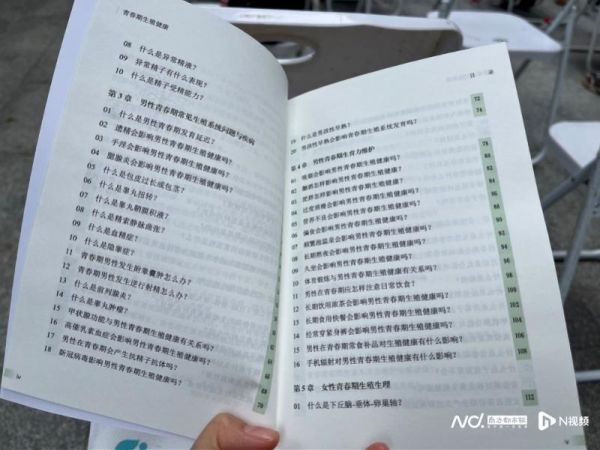 青春期生殖健康
08 什么是异常精液?
09 异常精子有什么表现?
10 什么是精子受精能力?
第3章 男性青春期常见生殖系统问题与疾病
01 什么是男性青春期发育延迟?
02 遗精会影响男性青春期生殖健康吗?
03 手淫会影响男性青春期生殖健康吗?
04 腮腺炎会影响男性青春期生殖健康吗?
05 什么是包皮过长或包茎?
06 什么是睾丸扭转?
07 什么是睾丸鞘膜积液?
08 什么是精索静脉曲张?
09 什么是血精症?
10 什么是隐睾症?
11 青春期男性发生附睾囊肿怎么办?
12 青春期男性发生逆行射精怎么办?
13 什么是前列腺炎?
14 什么是睾丸肿瘤?
15 甲状腺功能与男性青春期生殖健康有关系吗?
16 高催乳素血症会影响男性青春期生殖健康吗?
17 男性在青春期会产生抗精子抗体吗?
18 新冠病毒影响男性青春期生殖健康吗?
64
66
68
70
iv
目 录
19 什么是男孩性早熟? 72
20 男孩性早熟会影响青春期生殖系统发育吗? 74
第4章 男性青春期生育力维护
01 吸烟会影响男性青春期生殖健康吗? 78
02 酗酒怎样影响男性青春期生殖健康? 80
03 肥胖怎样影响男性青春期生殖健康? 82
04 过度消瘦会影响男性青春期生殖健康吗? 84
05 营养不良会影响男性青春期生殖健康吗? 86
06 偏食会影响男性青春期生殖健康吗? 88
07 阴囊温度会影响男性青春期生殖健康吗? 90
08 长期熬夜会影响男性青春期生殖健康吗? 92
09 久坐会影响男性青春期生殖健康吗? 94
10 体育锻炼与男性青春期生殖健康有关系吗? 96
11 男性在青春期应怎样注意日常饮食? 98
12 长期饮用浓茶会影响男性青春期生殖健康吗? 100
13 长期食用快餐会影响男性青春期生殖健康吗? 102
14 经常穿紧身裤会影响男性青春期生殖健康吗? 104
15 男性青春期常食补品对生殖健康有什么影响? 106
16 手机辐射对男性青春期生殖健康有什么影响? 108
第5章 女性青春期生殖生理
01 什么是下丘脑-垂体-卵巢轴? 112
v
N视频